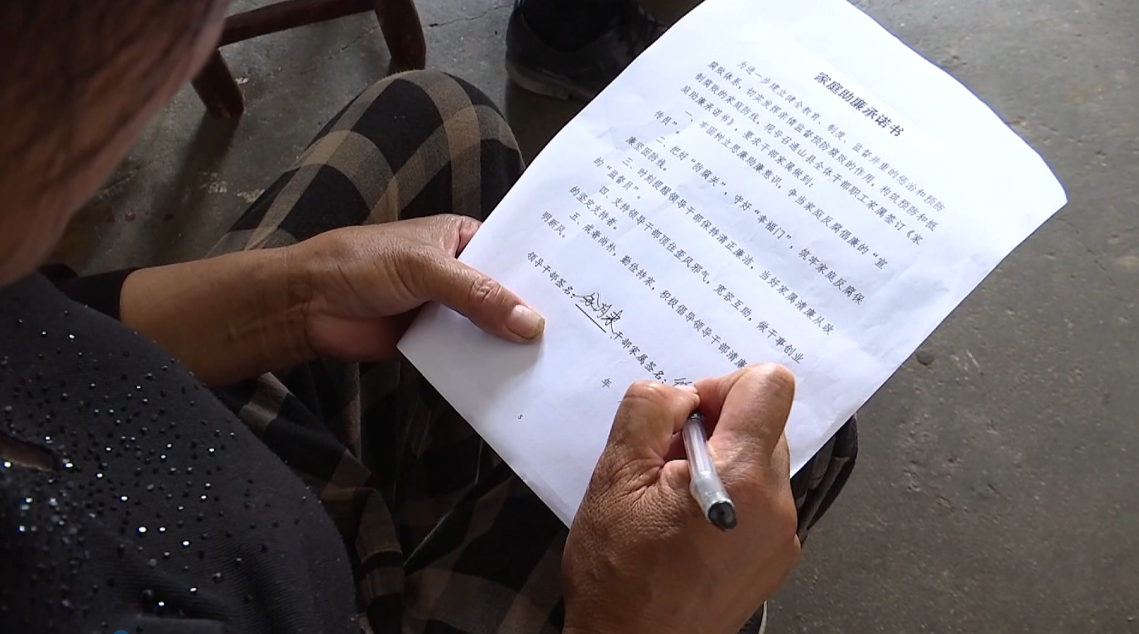 家庭助廉承诺书
为进一步建立健全教育、制度、监督并重的惩治和预防
腐败体系，切实发挥亲情监督预防腐败的作用，构筑预防和抵
制腐败的家庭防线，现号召通山县全体干部职工家属签订《家
庭助廉承诺书》，要求干部家属做到：
一、牢固树立思廉助廉意识，争当家庭反腐倡廉的“宣
传员”。
二、把好“防腐关”，守好“幸福门”，筑牢家庭反腐保
廉坚固防线。
三、时刻提醒领导干部保持清正廉洁，当好家属清廉从政
的“监督员”。
四、支持领导干部顶住歪风邪气，宽容互助，做干事创业
的坚定支持者。
五、戒奢尚朴，勤俭持家，积极倡导领导干部清廉
明新风。
领导干部签名： 干部家属签名：
年